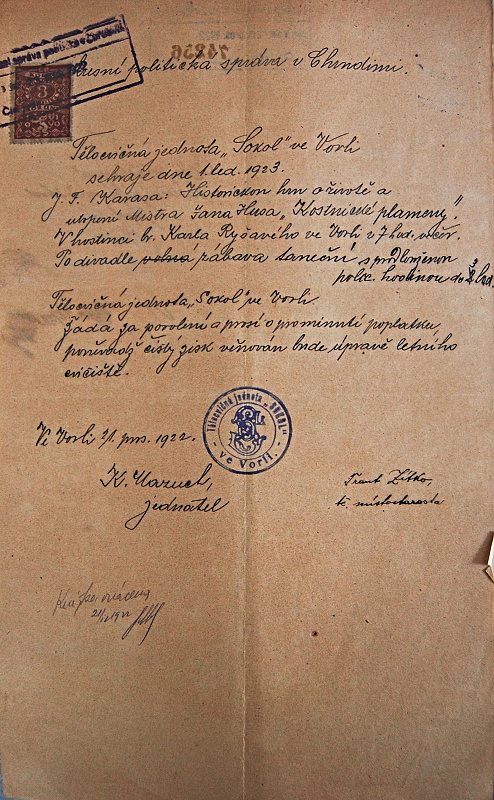 74836
okresní politická správa v Chrudimi.
3
Tělocvičná jednota „Sokol" ve Vorli
sehraje dne 1. led. 1923.
J. F. Karasa: Historickou hru o životě a
utrpení Mistra Jana Husa „Kostnické plameny".
V hostinci br. Karla Ryšavého ve Vorli v 7 hod. večer.
Po divadle volná zábava taneční s prodlouženou
polic. hodinou do 2 hod.
Tělocvičná jednota „Sokol" ve Vorli.
žádá za povolení a prosí o prominutí poplatku,
poněvadž čistý zisk věnován bude úpravě letního
cvičiště.
Tělocvičná jednota „SOKOL"
ve Vorli.
Ve Vorli 21 pros. 1922.
K. Mazuch,
jednatel
Frant Zitko,
t. č. místostarosta